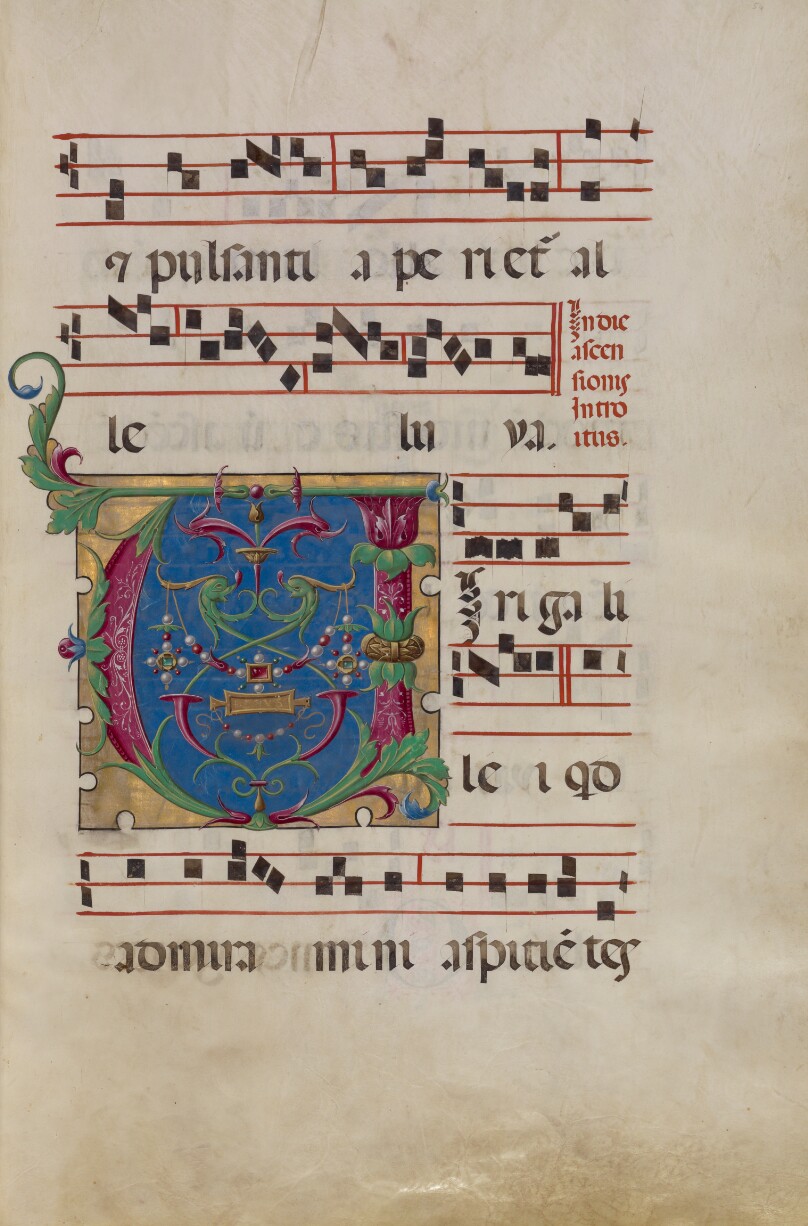 ⁊ pulsanti a pe ri et̃ al
le lu ya.
In die
ascen
sionis
Intro
itus.
V iri ga li
le i qd
admira mini aspiciẽ tes